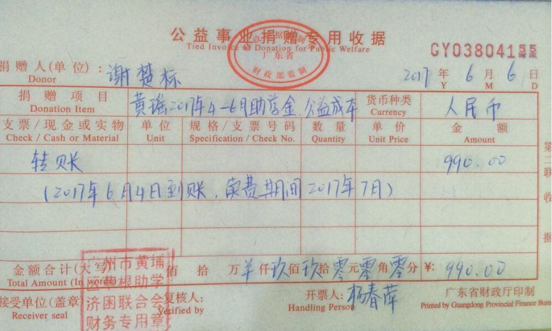 公益事业捐赠专用收据
Tied Invoice of Donation for Public Welfare
广东省
财政部监制
GY03804155
捐赠人(单位): 谢 标
Donor
2017 年 6 月 6 日
Y M D
捐赠项目 黄瑶2017年4-6月助学金 公益成本 货币种类 人民币
Donation Item Currency
支票/现金或实物 单位 规格/支票号码 数量 单价 金额
Check / Cash or Material Unit Specification / Check No. Quantity Unit Price Amount
转账 990.00
(2017年6月4日到账,续费期间2017年7月)
第二联收据
金额合计(大写) 佰 拾 万 羊 仟 玖 佰 玖 拾 零 元 零 角 零 分 ¥: 990.00
Total Amount (In word)
州市黄埔
根助学
济困联合会
财务专用章
接受单位(盖章) 复核人: 开票人: 杨春萍 广东省财政厅印制
Receiver seal Verified by Handling Person Printed by Guangdong Provincial Finance Bureau